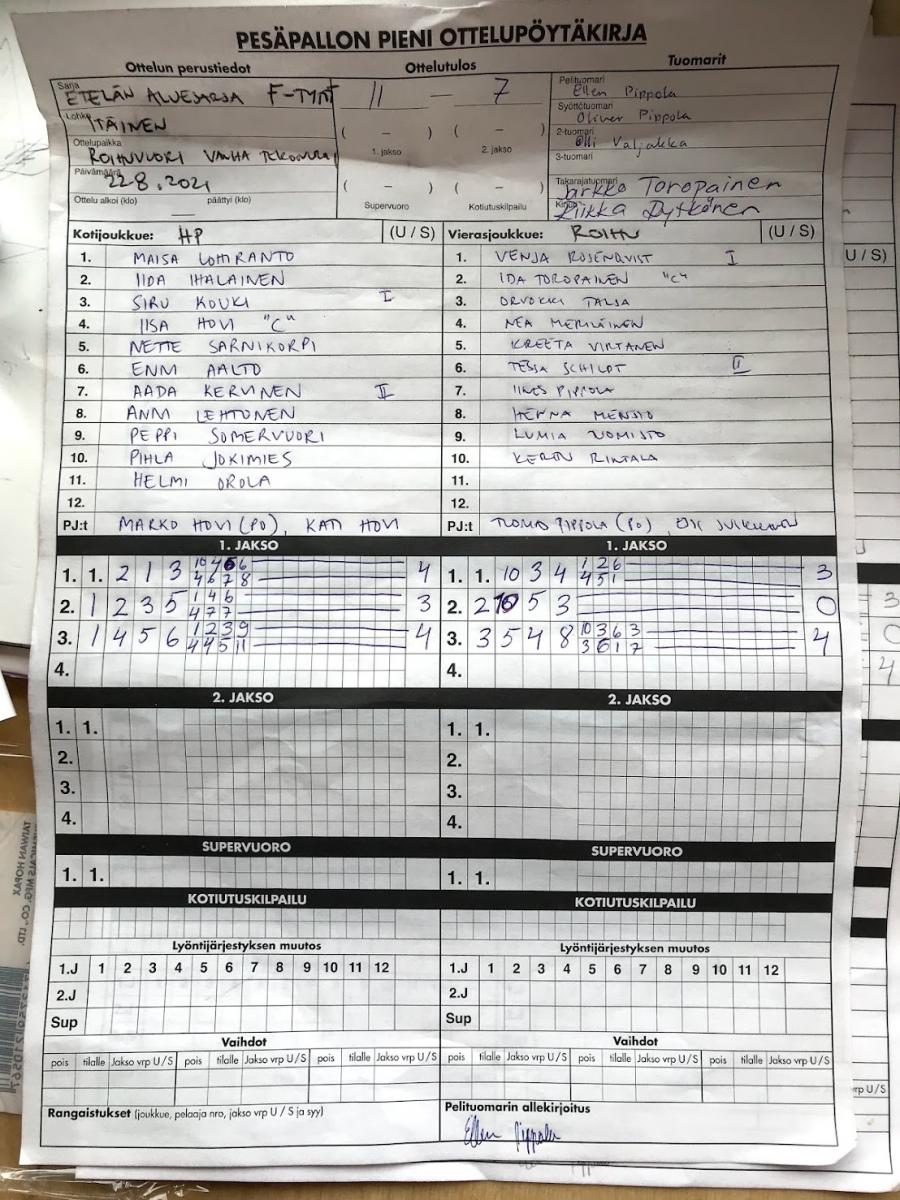 PESÄPALLON PIENI OTTELUPÖYTÄKIRJA
Ottelun perustiedot Ottelutulos Tuomarit
Sarja ETELÄN ALUESARJA F-TYTÖT 11 — 7 Pelituomari Ellen Pippola
Lohko ITÄINEN Syöttötuomari Oliver Pippola
Ottelupaikka ROIHUVUORI VANHA TEKONURMI ( – ) ( – ) 2-tuomari Olli Valjakka
1. jakso 2. jakso 3-tuomari
Päivämäärä 22.8.2021 ( – ) ( – ) Takarajatuomari Jarkko Toropainen
Ottelu alkoi (klo) — päättyi (klo) Supervuoro Kotiutuskilpailu Kirjuri Riikka Pytkönen
Kotijoukkue: HP (U / S) Vierasjoukkue: ROIHU (U / S)
1. MAISA LOHIRANTO 1. VENJA ROSENQVIST I
2. IIDA IHALAINEN 2. IDA TOROPAINEN "C"
3. SIRU KOUKI I 3. ORVOKKI TALJA
4. IISA HOVI "C" 4. NEA MERILÄINEN
5. NETTE SARNIKORPI 5. KREETA VIRTANEN
6. ENNI AALTO 6. TESSA SCHILDT II
7. AADA KERVINEN II 7. IINES PIPPOLA
8. ANNI LEHTONEN 8. HENNA
9. PEPPI SOMERVUORI 9. LUMIA
10. PIHLA JOKIMIES 10. RINTALA
11. HELMI OROLA 11.
12. 12.
PJ:t MARKO HOVI (PO), KATI HOVI PJ:t TUOMAS PIPPOLA (PO),
1. JAKSO 1. JAKSO
1. 1. 2 1 3 10 4 6 6 4 1. 1. 10 3 4 1 2 6 3
4 6 7 8 4 5 1
2. 1 2 3 5 1 4 6 3 2. 2 10 5 3 0
4 7 7
3. 1 4 5 6 1 2 3 9 4 3. 3 5 4 8 10 3 6 3 4
4 4 5 11 3 6 1 7
4. 4.
2. JAKSO 2. JAKSO
1. 1. 1. 1.
2. 2.
3. 3.
4. 4.
SUPERVUORO SUPERVUORO
1. 1. 1. 1.
KOTIUTUSKILPAILU KOTIUTUSKILPAILU
Lyöntijärjestyksen muutos Lyöntijärjestyksen muutos
1.J 1 2 3 4 5 6 7 8 9 10 11 12 1.J 1 2 3 4 5 6 7 8 9 10 11 12
2.J 2.J
Sup Sup
Vaihdot Vaihdot
pois tilalle Jakso vrp U / S pois tilalle Jakso vrp U / S pois tilalle Jakso vrp U / S pois tilalle Jakso vrp U / S pois tilalle Jakso vrp U / S pois tilalle Jakso vrp U / S
Rangaistukset (joukkue, pelaaja nro, jakso vrp U / S ja syy) Pelituomarin allekirjoitus
Ellen Pippola
U / S)
3
0
4
vrp U / S
TAIWAN HOPAX
CHEMICALS MFG. CO., LTD.